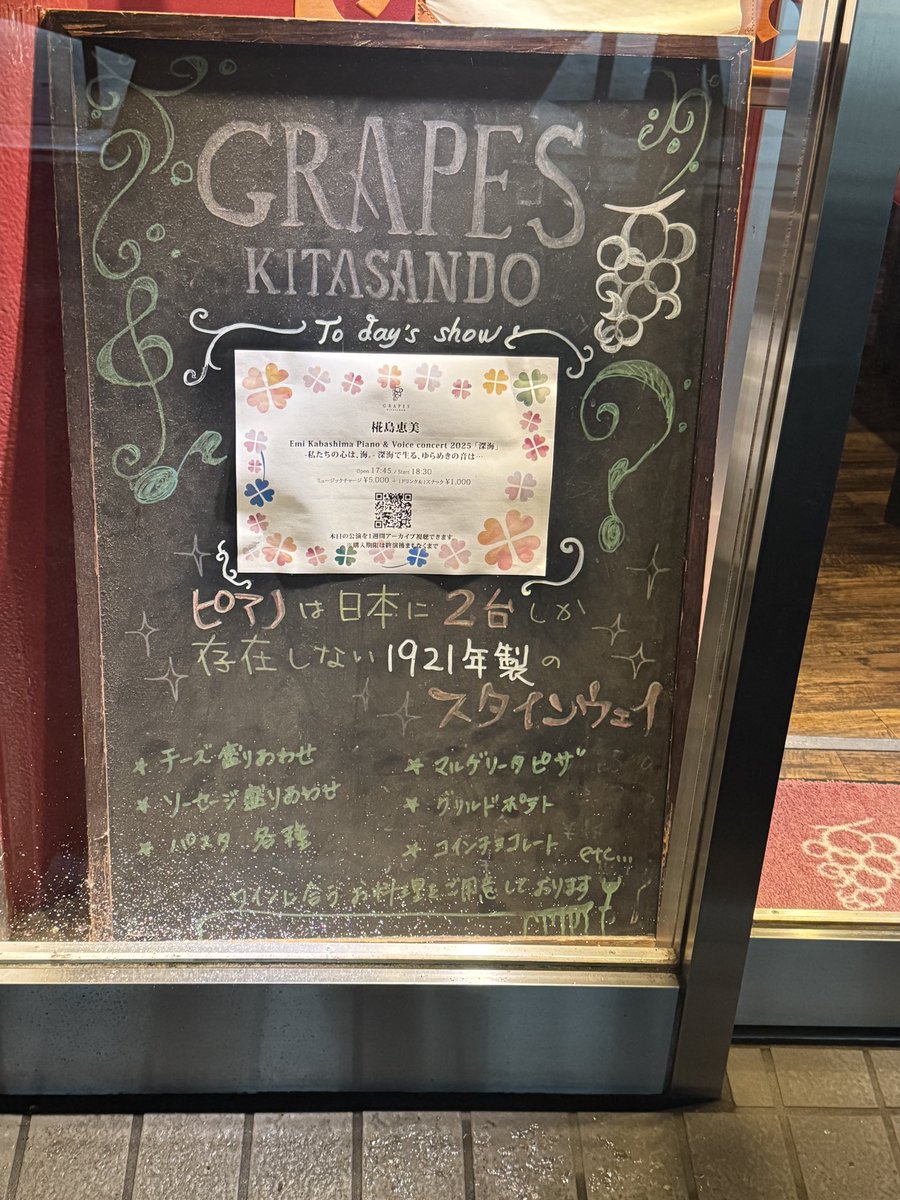 GRAPES
KITASANDO
To day's show
GRAPES
KITASANDO
椛島恵美
Emi Kabashima Piano & Voice concert 2025「深海」
-私たちの心は、海。- 深海で生る、ゆらめきの音は…
Open 17:45 / Start 18:30
ミュージックチャージ ¥5,000 + 1ドリンク&1スナック ¥1,000
本日の公演を1週間アーカイブ視聴できます
※購入期限は終演後まもなくまで
ピアノは日本に2台しか
存在しない1921年製の
スタインウェイ
★ チーズ盛りあわせ
★ ソーセージ盛りあわせ
★ パスタ 各種
★ マルゲリータピザ
★ グリルドポテト
★ コインチョコレート etc...
ワインに合うお料理をご用意しております